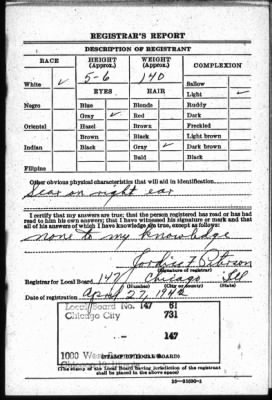 REGISTRAR'S REPORT
DESCRIPTION OF REGISTRANT
RACE HEIGHT (Approx.) WEIGHT (Approx.) COMPLEXION
White ✓ 5-6 140 Sallow
Light ✓
EYES HAIR
Negro Blue Blonde Ruddy
Gray ✓ Red Dark
Oriental Hazel Brown Freckled
Brown Black Light brown
Indian Black Gray ✓ Dark brown
Bald Black
Filipino
Other obvious physical characteristics that will aid in identification
Scar on right ear
I certify that my answers are true; that the person registered has read or has had
read to him his own answers; that I have witnessed his signature or mark and that
all of his answers of which I have knowledge are true, except as follows:
none to my knowledge
F. Peterson
(Signature of registrar)
Registrar for Local Board 147 Chicago Ill
(Number) (City or county) (State)
Date of registration April 27, 1942
Local Board No. 147 61
Chicago City 731
147
1000 West
(STAMP OF LOCAL BOARD)
(The stamp of the Local Board having jurisdiction of the registrant
shall be placed in the above space)